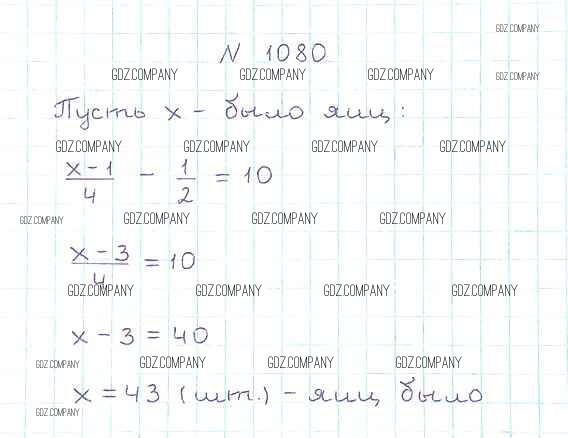 GDZ.COMPANY
N 1080
GDZ.COMPANY GDZ.COMPANY GDZ.COMPANY GDZ.COMPANY
Пусть x - было яиц:
GDZ.COMPANY GDZ.COMPANY GDZ.COMPANY GDZ.COMPANY
x-1/4 - 1/2 = 10
GDZ.COMPANY GDZ.COMPANY GDZ.COMPANY GDZ.COMPANY
x-3/4 = 10
GDZ.COMPANY GDZ.COMPANY GDZ.COMPANY GDZ.COMPANY
x - 3 = 40
GDZ.COMPANY GDZ.COMPANY GDZ.COMPANY GDZ.COMPANY
x = 43 (шт.) - яиц было
GDZ.COMPANY